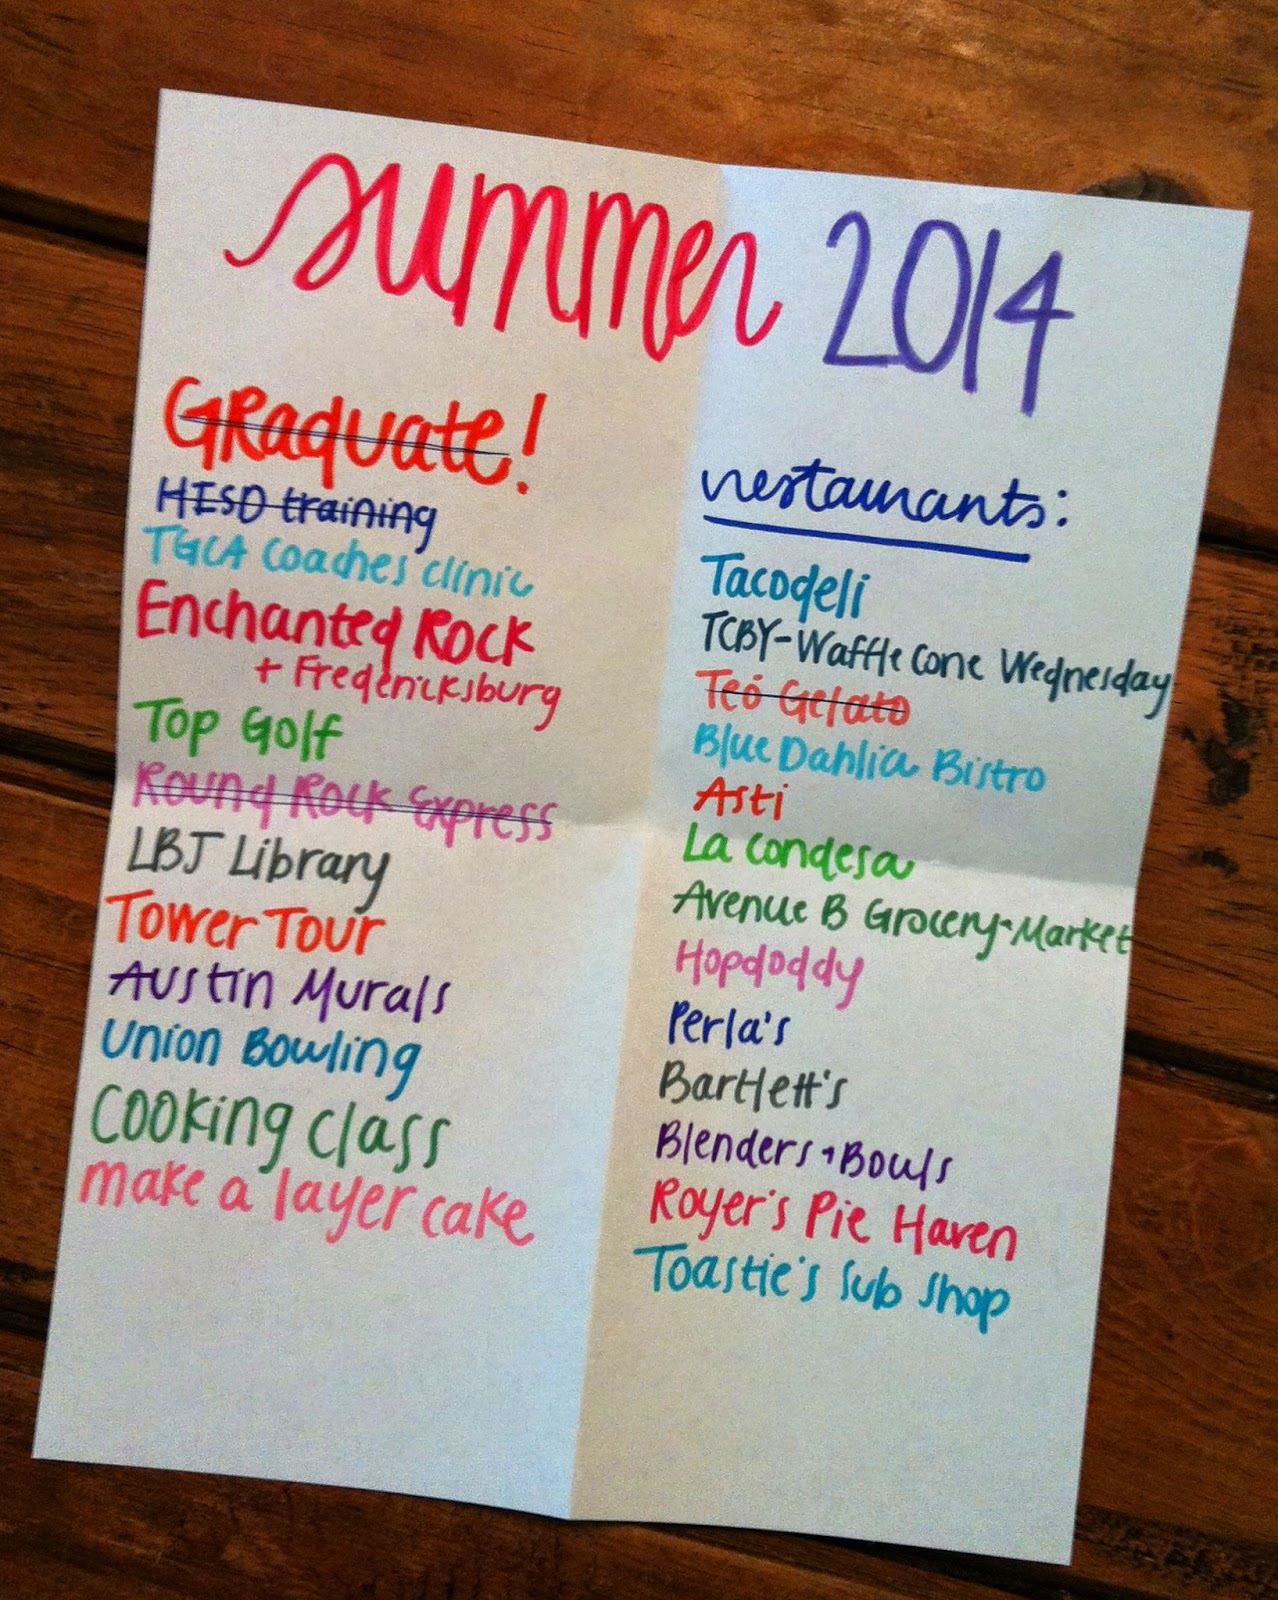 summer 2014
Graduate!
HISD training
TGCA Coaches clinic
Enchanted Rock
+ Fredericksburg
Top Golf
Round Rock Express
LBJ Library
Tower Tour
Austin Murals
Union Bowling
Cooking class
make a layer cake
restaurants:
Tacodeli
TCBY-Waffle Cone Wednesday
Teó Gelato
Blue Dahlia Bistro
Asti
La Condesa
Avenue B Grocery+Market
Hopdoddy
Perla's
Bartlett's
Blenders+Bowls
Royer's Pie Haven
Toastie's Sub Shop